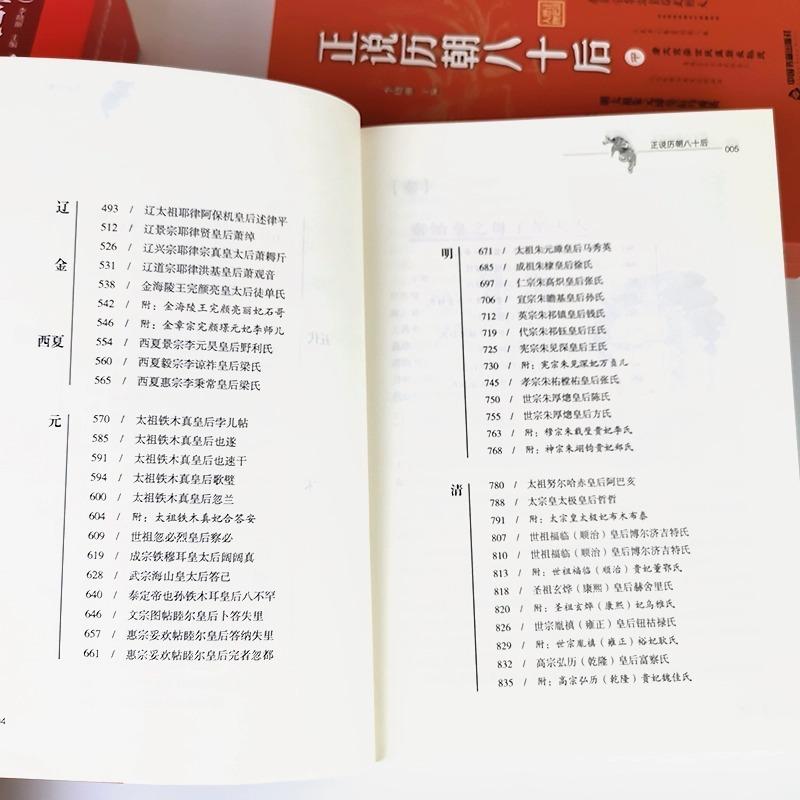 正说历朝八十后
中国书籍出版社
辽
493 / 辽太祖耶律阿保机皇后述律平
512 / 辽景宗耶律贤皇后萧绰
526 / 辽兴宗耶律宗真皇太后萧耨斤
531 / 辽道宗耶律洪基皇后萧观音
金
538 / 金海陵王完颜亮皇太后徒单氏
542 / 附：金海陵王完颜亮丽妃石哥
546 / 附：金章宗完颜璟元妃李师儿
西夏
554 / 西夏景宗李元昊皇后野利氏
560 / 西夏毅宗李谅祚皇后梁氏
565 / 西夏惠宗李秉常皇后梁氏
元
570 / 太祖铁木真皇后孛儿帖
585 / 太祖铁木真皇后也遂
591 / 太祖铁木真皇后也速干
594 / 太祖铁木真皇后歌壁
600 / 太祖铁木真皇后忽兰
604 / 附：太祖铁木真妃合答安
609 / 世祖忽必烈皇后察必
619 / 成宗铁穆耳皇太后阔阔真
628 / 武宗海山皇太后答己
640 / 泰定帝也孙铁木耳皇后八不罕
646 / 文宗图帖睦尔皇后卜答失里
657 / 惠宗妥欢帖睦尔皇后答纳失里
661 / 惠宗妥欢帖睦尔皇后完者忽都
正说历朝八十后 005
明
671 / 太祖朱元璋皇后马秀英
685 / 成祖朱棣皇后徐氏
697 / 仁宗朱高炽皇后张氏
706 / 宣宗朱瞻基皇后孙氏
712 / 英宗朱祁镇皇后钱氏
719 / 代宗朱祁钰皇后汪氏
725 / 宪宗朱见深皇后王氏
730 / 附：宪宗朱见深妃万贞儿
745 / 孝宗朱祐樘皇后张氏
750 / 世宗朱厚熜皇后陈氏
755 / 世宗朱厚熜皇后方氏
763 / 附：穆宗朱载垕贵妃李氏
768 / 附：神宗朱翊钧贵妃郑氏
清
780 / 太祖努尔哈赤皇后阿巴亥
788 / 太宗皇太极皇后哲哲
791 / 附：太宗皇太极妃布木布泰
807 / 世祖福临（顺治）皇后博尔济吉特氏
810 / 世祖福临（顺治）皇后博尔济吉特氏
813 / 附：世祖福临（顺治）贵妃董鄂氏
818 / 圣祖玄烨（康熙）皇后赫舍里氏
820 / 附：圣祖玄烨（康熙）妃乌雅氏
826 / 世宗胤禛（雍正）皇后钮祜禄氏
829 / 附：世宗胤禛（雍正）裕妃耿氏
832 / 高宗弘历（乾隆）皇后富察氏
835 / 附：高宗弘历（乾隆）贵妃魏佳氏